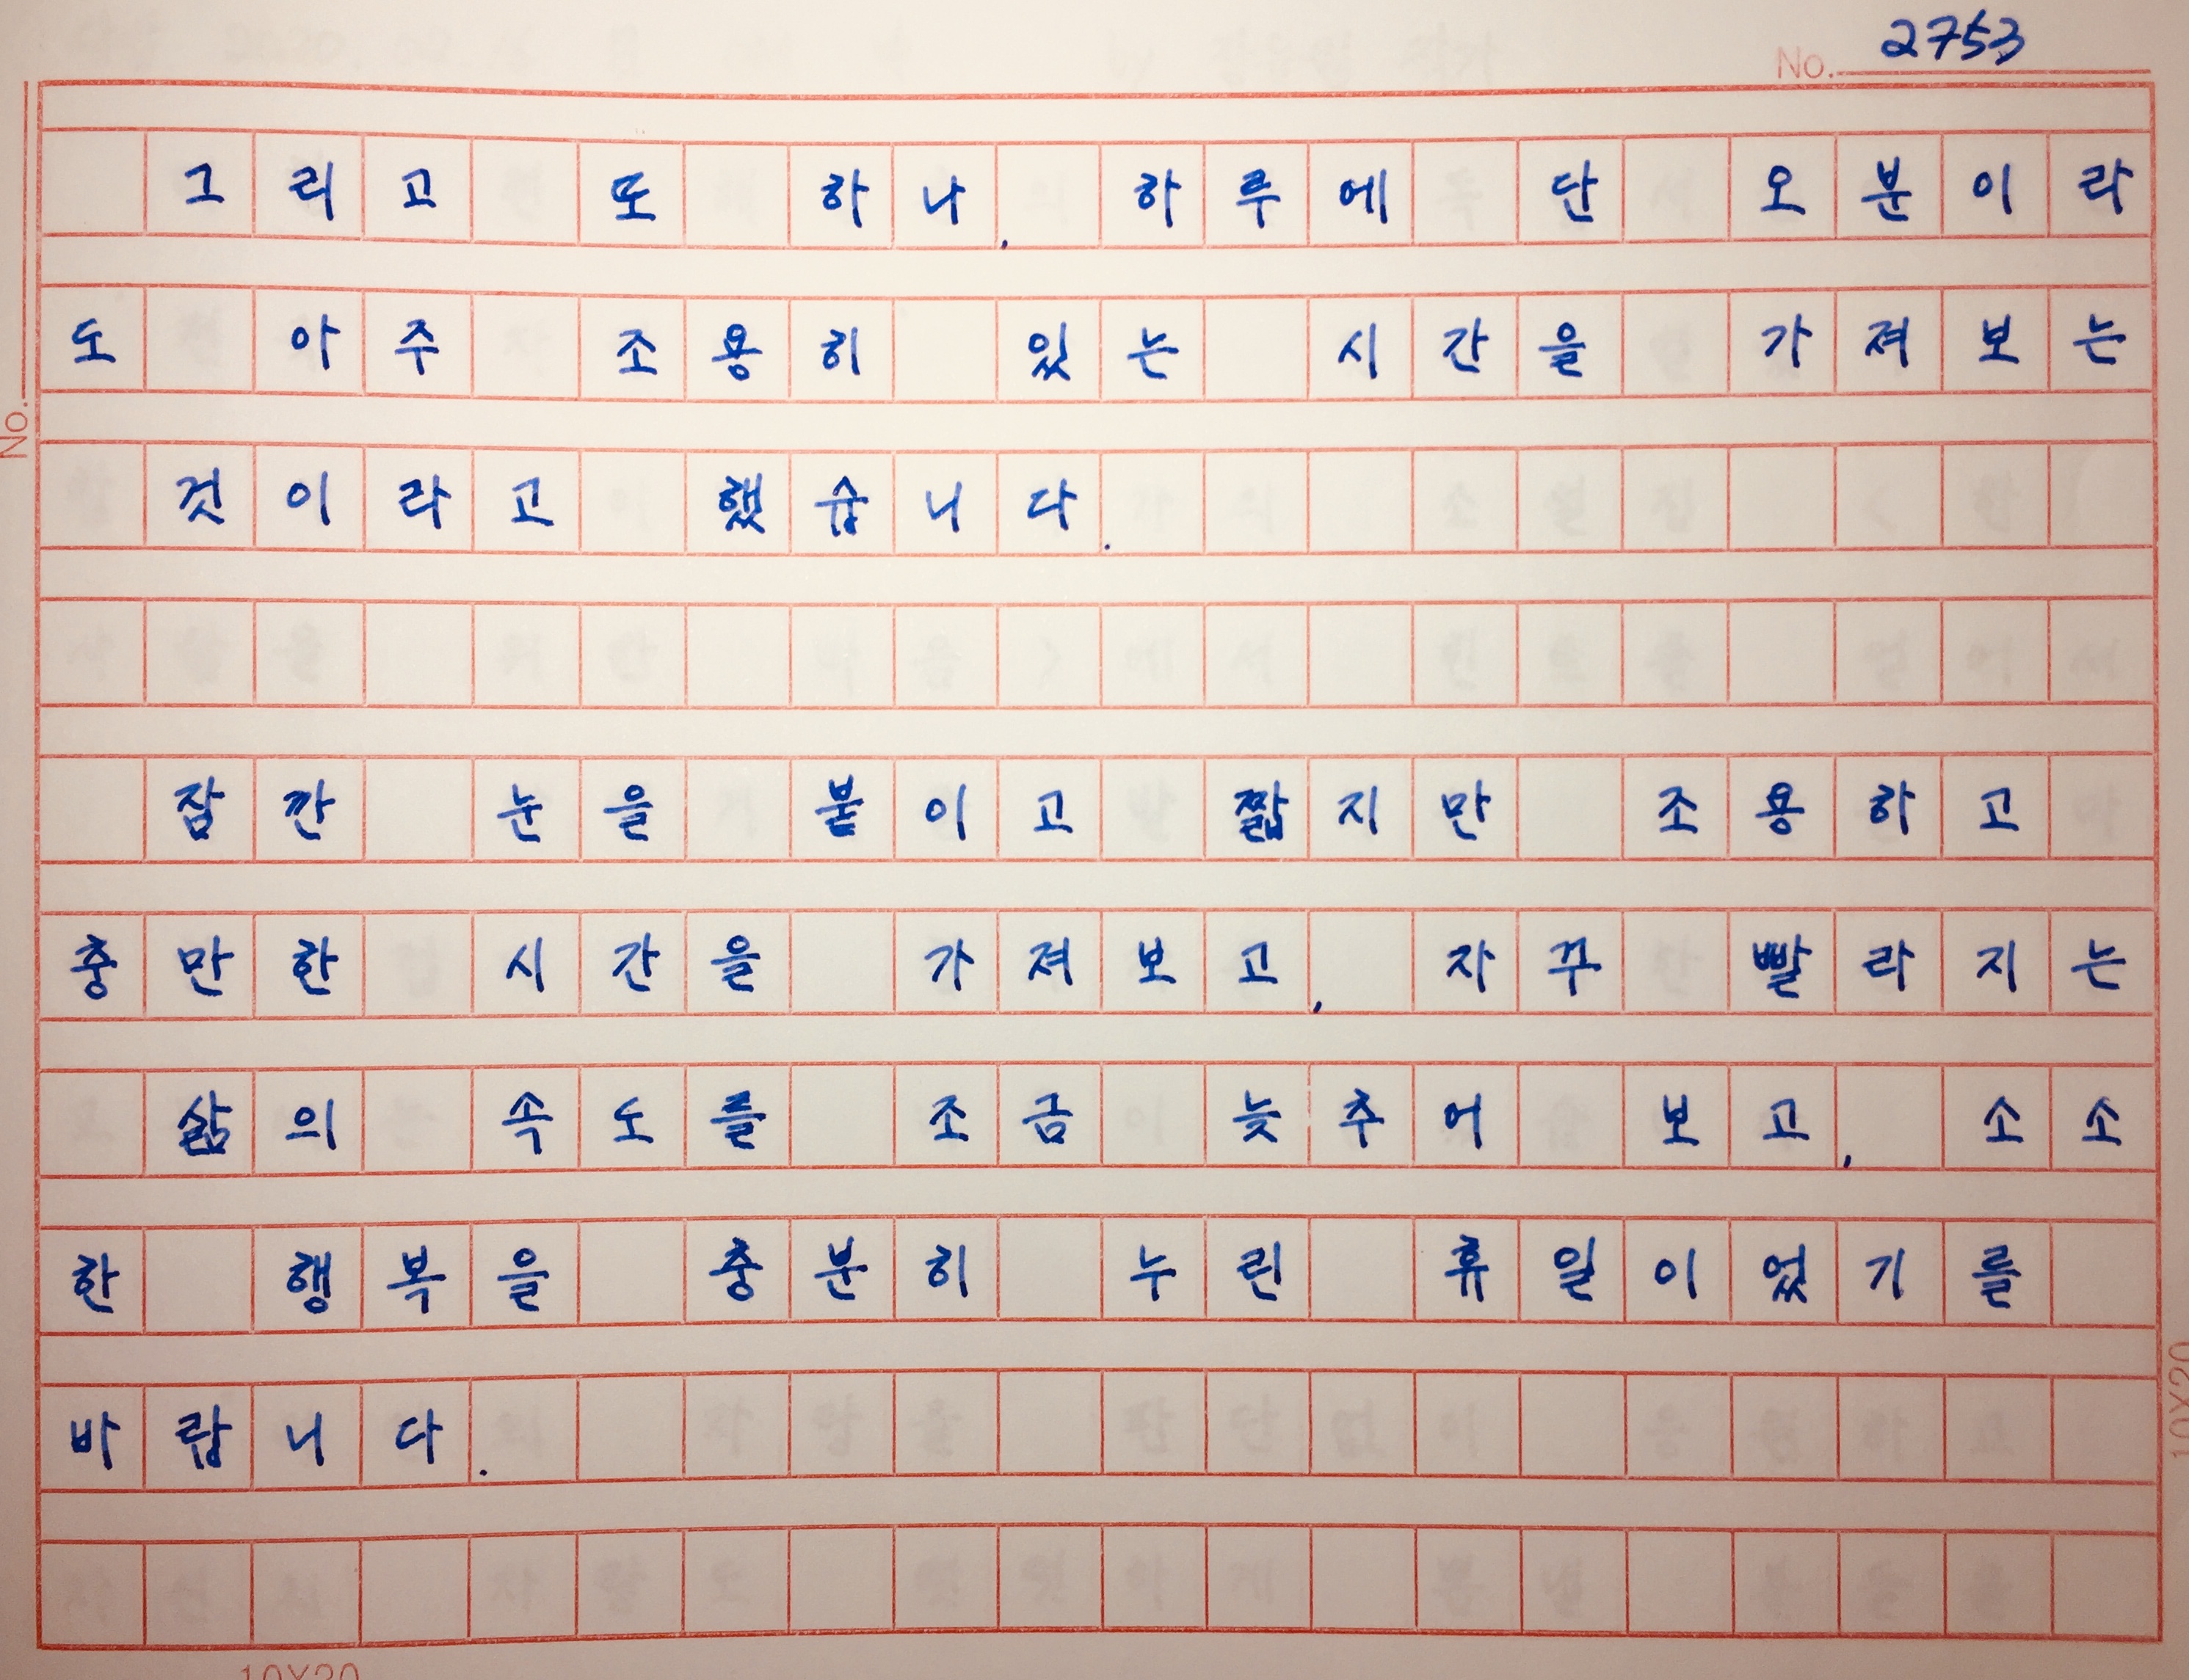 No. 2753
그리고 또 하나, 하루에 단 오분이라
도 아주 조용히 있는 시간을 가져보는
것이라고 했습니다.
잠깐 눈을 붙이고 짧지만 조용하고
충만한 시간을 가져보고, 자꾸 빨라지는
삶의 속도를 조금 늦추어 보고, 소소
한 행복을 충분히 누린 휴일이었기를
바랍니다.
No.
10X20
10X20